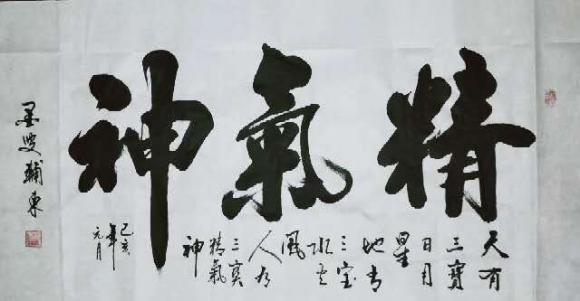 精氣神
天有
三寶
日月
星
地有
三宝
水火
風
人有
三寶
精氣
神
己亥
年
元月
墨叟輔東